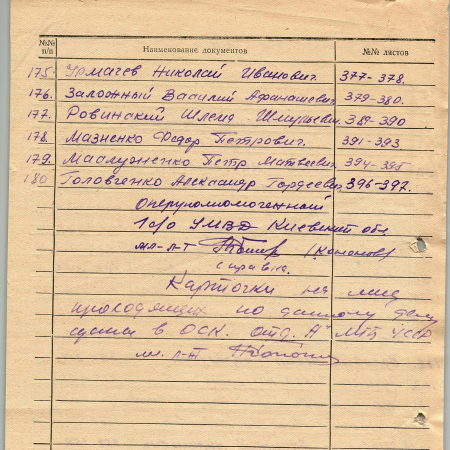 №№ п/п Наименование документов №№ листов
175. Чумачев Николай Иванович. 377-378.
176. Заложный Василий Афанасьевич 379-380.
177. Ровинский Шлема Шмульевич. 389-390
178. Мазненко Федор Петрович. 391-393
179. Петр Матвеевич. 394-395
180 Головченко Александр Гордеевич. 396-397.
Оперуполномоченный
1 с/о УМВД Киевской обл
мл. л-т (Кононов)
Справка.
Карточки на лиц
проходящих по данному делу
сданы в ОСК. отд. "А" МГБ УССР
мл. л-т